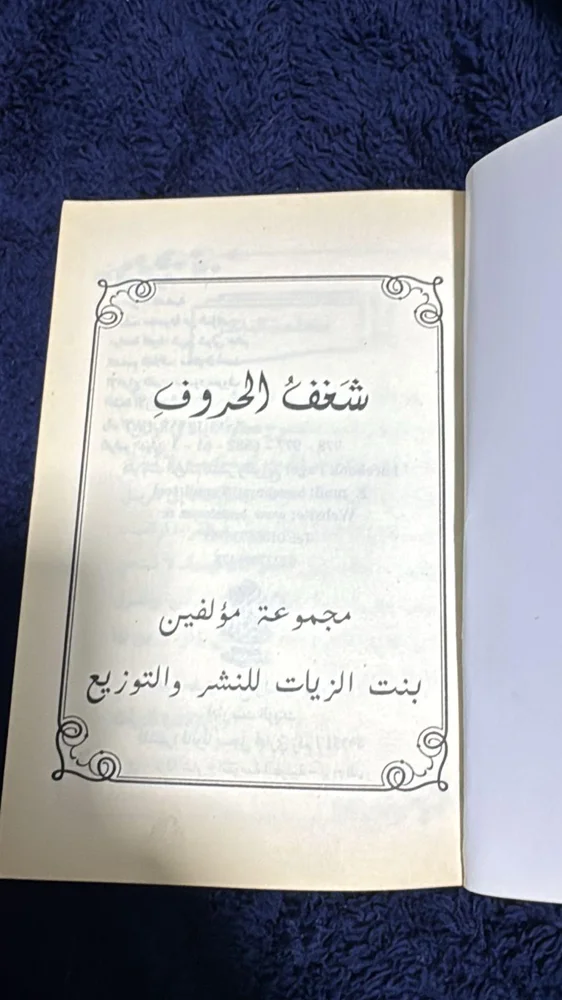 شَغَفُ الحروفِ
مجموعة مؤلفين
بنت الزيات للنشر والتوزيع